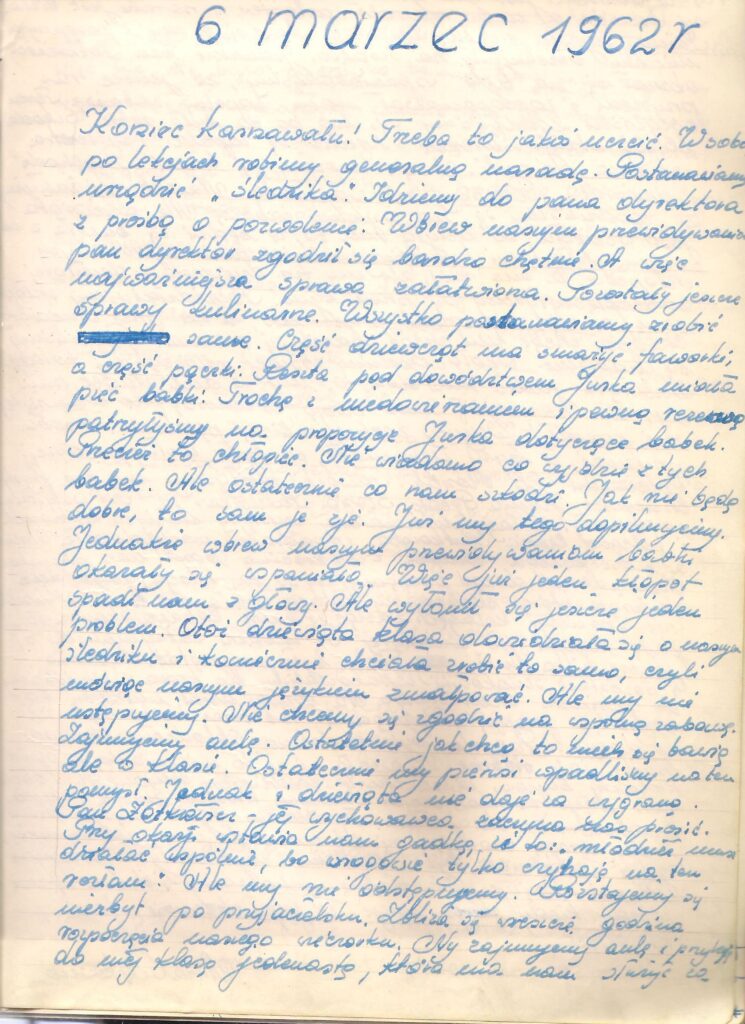 6 marzec 1962r
Koniec karnawału! Trzeba to jakoś uczcić. W sobo
po lekcjach robimy generalną naradę. Postanawiamy
urządzić „Śledzika". Idziemy do pana dyrektora
z prośbą o pozwolenie. Wbrew naszym przewidywaniom
pan dyrektor zgodził się bardzo chętnie. A więc
najważniejsza sprawa załatwiona. Pozostały jeszcze
sprawy kulinarne. Wszystko postanawiamy zrobić
same. Część dziewcząt ma smażyć faworki,
a część pączki. Reszta pod dowództwem Jurka miała
piec babki. Trochę z niedowierzaniem i pewną rezerwą
patrzyłyśmy na propozycje Jurka dotyczące babek.
Przecież to chłopiec. Nie wiadomo co wyjdzie z tych
babek. Ale ostatecznie co nam szkodzi. Jak nie będą
dobre, to sam je zje. Już my tego dopilnujemy.
Jednakże wbrew naszym przewidywaniom babki
okazały się wspaniałe. Więc już jeden kłopot
spadł nam z głowy. Ale wyłonił się jeszcze jeden
problem. Otóż dziewiąta klasa dowiedziała się o naszym
śledziku i koniecznie chciała zrobić to samo, czyli
mówiąc naszym językiem zmałpować. Ale my nie
ustępujemy. Nie chcemy się zgodzić na wspólną zabawę.
Zajmujemy aulę. Ostatecznie jak chcą to niech się bawią
ale w klasie. Ostatecznie my pierwsi wpadliśmy na ten
pomysł. Jednak i dziewiąta nie daje za wygraną.
Pan - jej wychowawca, zaczyna nas prosić.
Przy okazji wstawia nam gadkę, iż to: „młodzież musi
działać wspólnie, bo wrogowie tylko czyhają na ten
rozłam." Ale my nie odstępujemy. Rozstajemy się
niezbyt po przyjacielsku. Zbliża się wreszcie godzina
rozpoczęcia naszego wieczorku. My zajmujemy aulę i
do niej klasę jedenastą, która ma nam służyć za